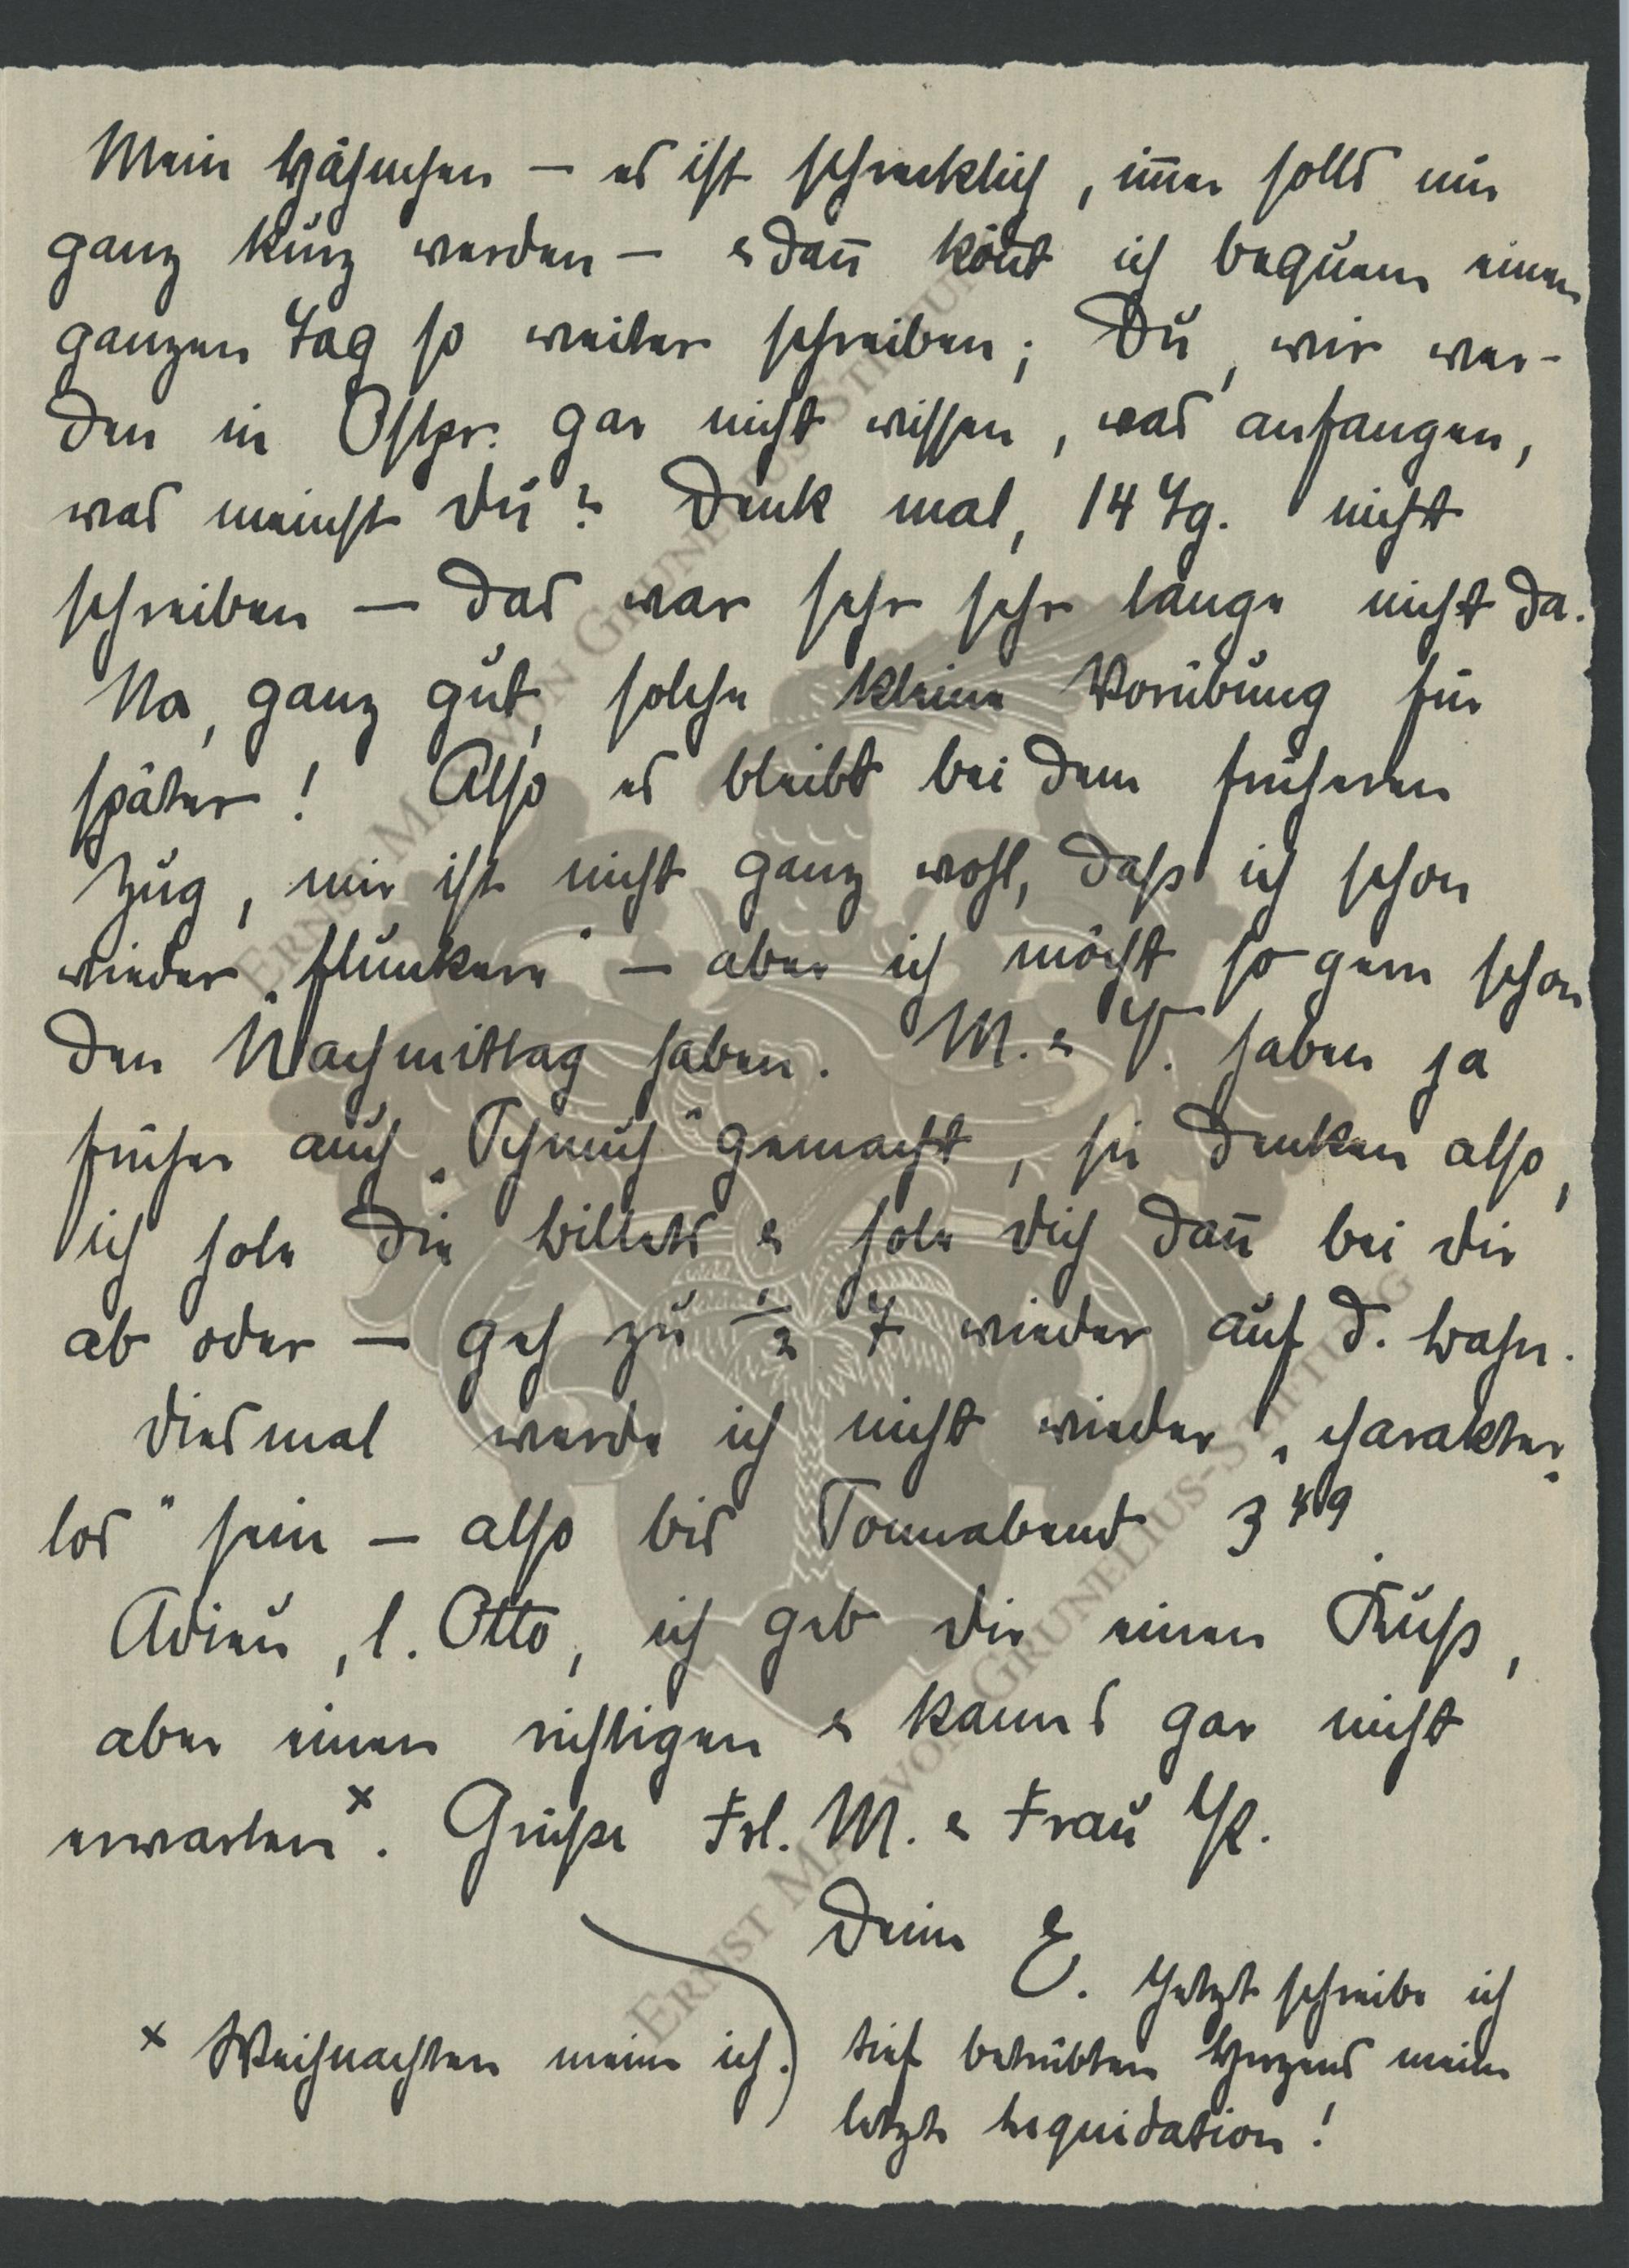 Mein Hähnchen – es ist schrecklich, im̄er solls nur
ganz kurz werden – & dan̄ kön̄t ich bequem einen
ganzen Tag so weiter schreiben; Du, wir wer-
den in Ostpr. gar nicht wissen, was anfangen,
was meinst Du? Denk mal, 14 Tg. nicht
schreiben – das war sehr sehr lange nicht da.
Na, ganz gut, solche kleine Vorübung für
später! Also es bleibt bei dem früheren
Zug, mir ist nicht ganz wohl, dass ich schon
wieder „flunkere“ – aber ich möcht so gern schon
den Nachmittag haben. M. & V. haben ja
früher auch „Schmuh“ gemacht, sie denken also,
ich hole die Billets & hole Dich dan̄ bei Dir
ab oder – geh zu ½ 7 wieder auf d. Bahn.
Diesmal werde ich nicht wieder „charakter-
los“ sein – also bis Sonnabend 3 49.
Adieu, l. Otto, ich geb Dir einen Kuss,
aber einen richtigen & kanns gar nicht
erwarten x. Grüsse Frl. M. & Frau
Deine E. Jetzt schreibe ich
x Weihnachten meine ich.) tief betrübten Herzens meine
letzte Liquidation!
ERNST MAX VON GRUNELIUS-STIFTUNG
ERNST MAX VON GRUNELIUS-STIFTUNG